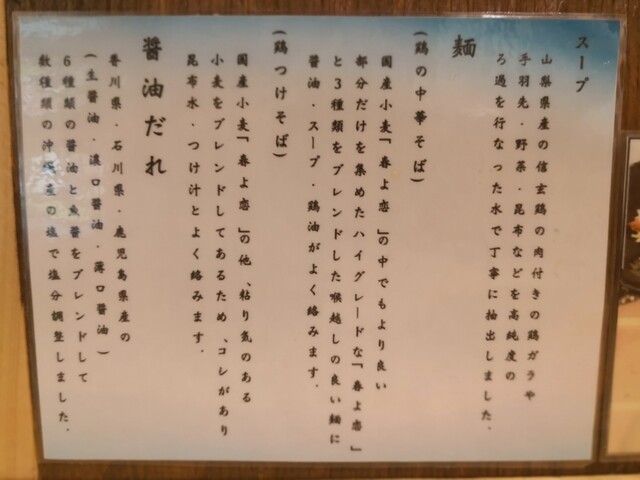 スープ
山梨県産の信玄鶏の肉付きの鶏ガラや
手羽先・野菜・昆布などを高純度の
ろ過を行なった水で丁寧に抽出しました.
麺
(鶏の中華そば)
国産小麦「春よ恋」の中でもより良い
部分だけを集めたハイグレードな「春よ恋」
と3種類をブレンドした喉越しの良い麺に
醤油・スープ・鶏油がよく絡みます.
(鶏つけそば)
国産小麦「春よ恋」の他、粘り気のある
小麦をブレンドしてあるため、コシがあり
昆布水・つけ汁とよく絡みます.
醤油だれ
香川県・石川県・鹿児島県産の
(生醤油・濃口醤油・薄口醤油)
6種類の醤油と魚醤をブレンドして
数種類の沖縄産の塩で塩分調整しました.